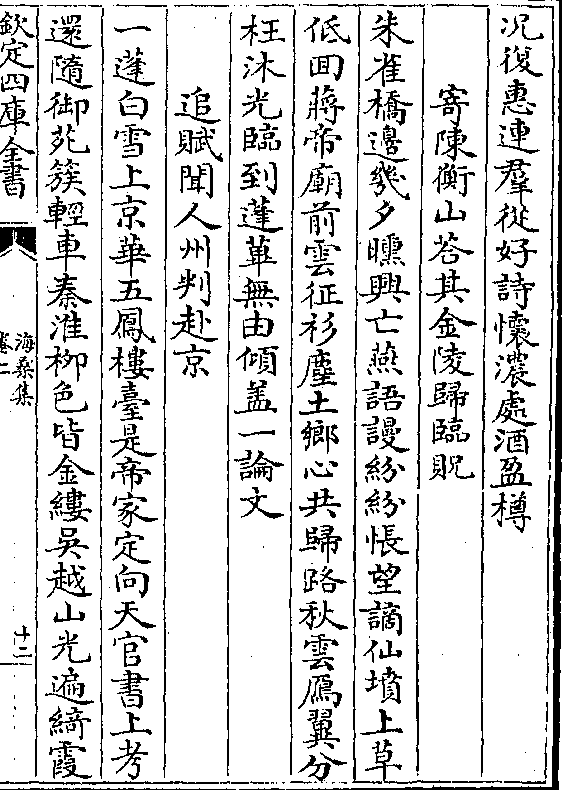 況復惠連羣從好詩懷濃處酒盈樽
寄陳衡山荅其金陵歸臨貺
朱雀橋邊幾夕曛興亡燕語謾紛紛悵望謫仙墳上草
低回蔣帝廟前雲征衫塵土鄉心共歸路秋雲鴈翼分
枉沐光臨到蓬蓽無由傾盖一論文
追賦聞人州判赴京
一蓬白雪上京華五鳳樓臺是帝家定向天官書上考
還隨御苑簇輕車秦淮柳色皆金縷吳越山光遍綺霞
欽定四庫全書
海桑集
卷二
十二